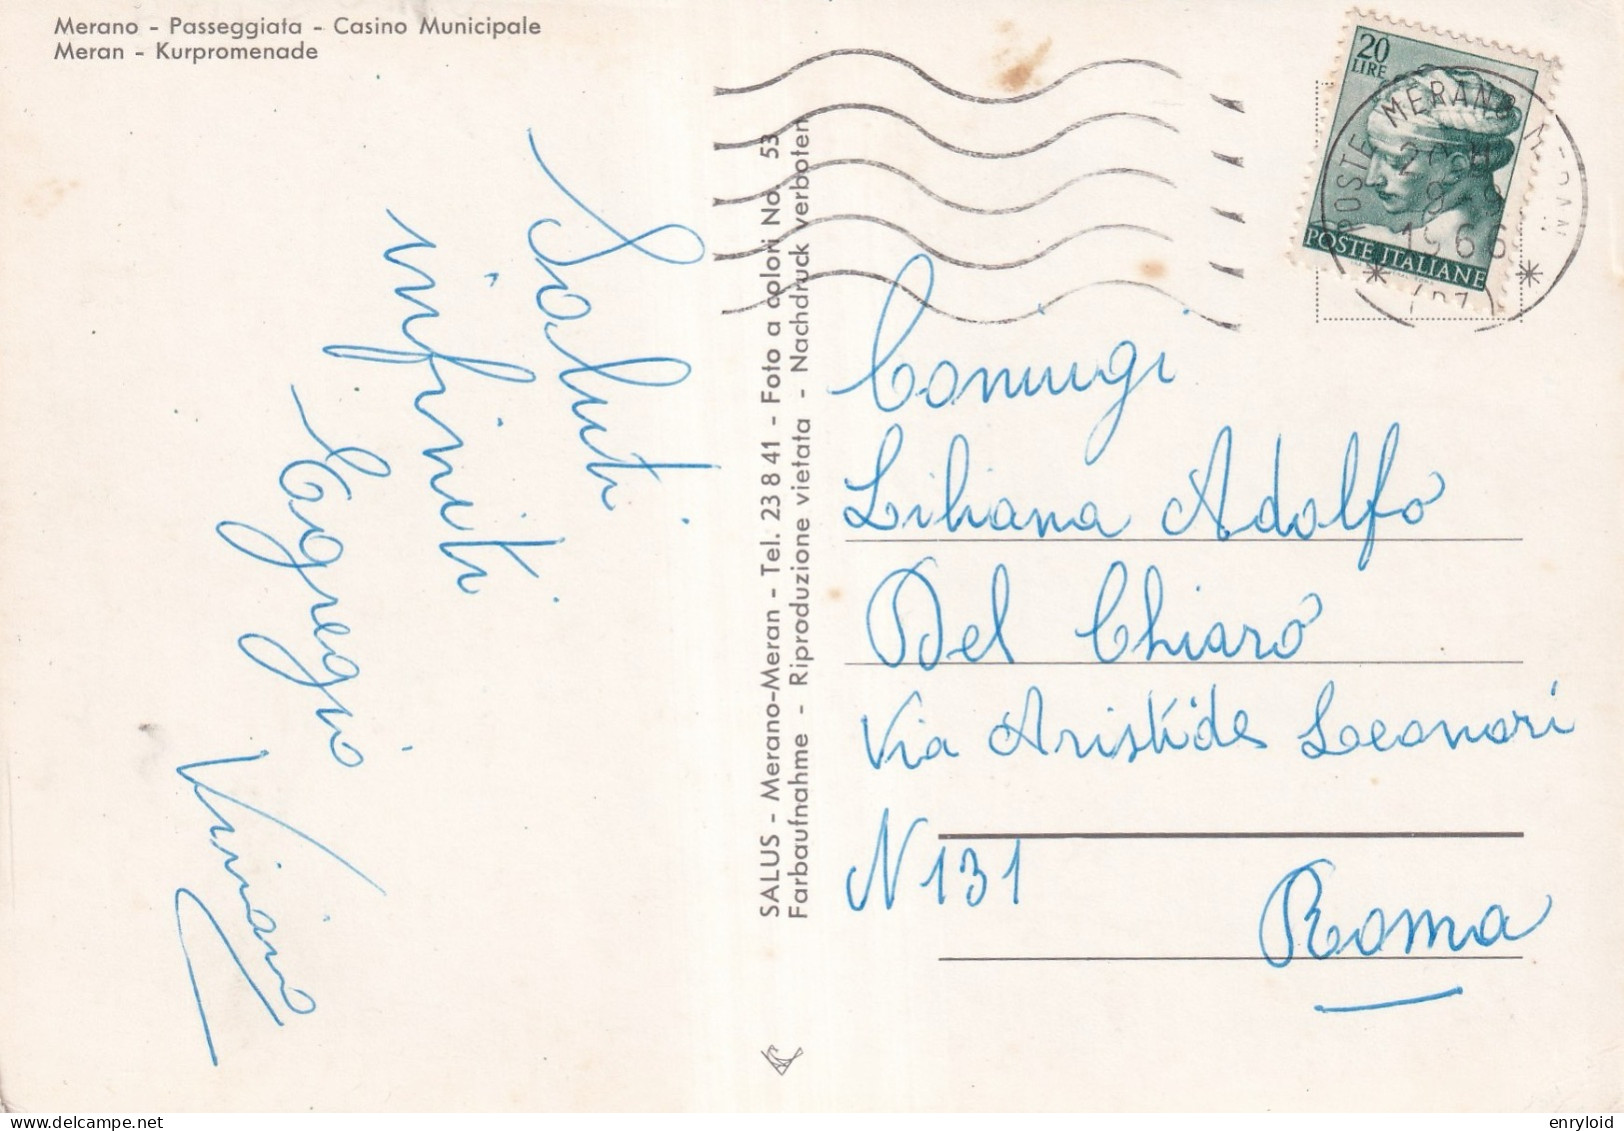 Merano - Passeggiata - Casino Municipale
Meran - Kurpromenade
Saluti
infiniti
Egregio
SALUS - Merano-Meran - Tel. 23 8 41 - Foto a colori No. 53
Farbaufnahme - Riproduzione vietata - Nachdruck verboten
20
LIRE
POSTE ITALIANE
POSTE MERANO MERAN
1966
Coniugi
Liliana Adolfo
Del Chiaro
Via Aristide Leonori
N 131
Roma
enryloid